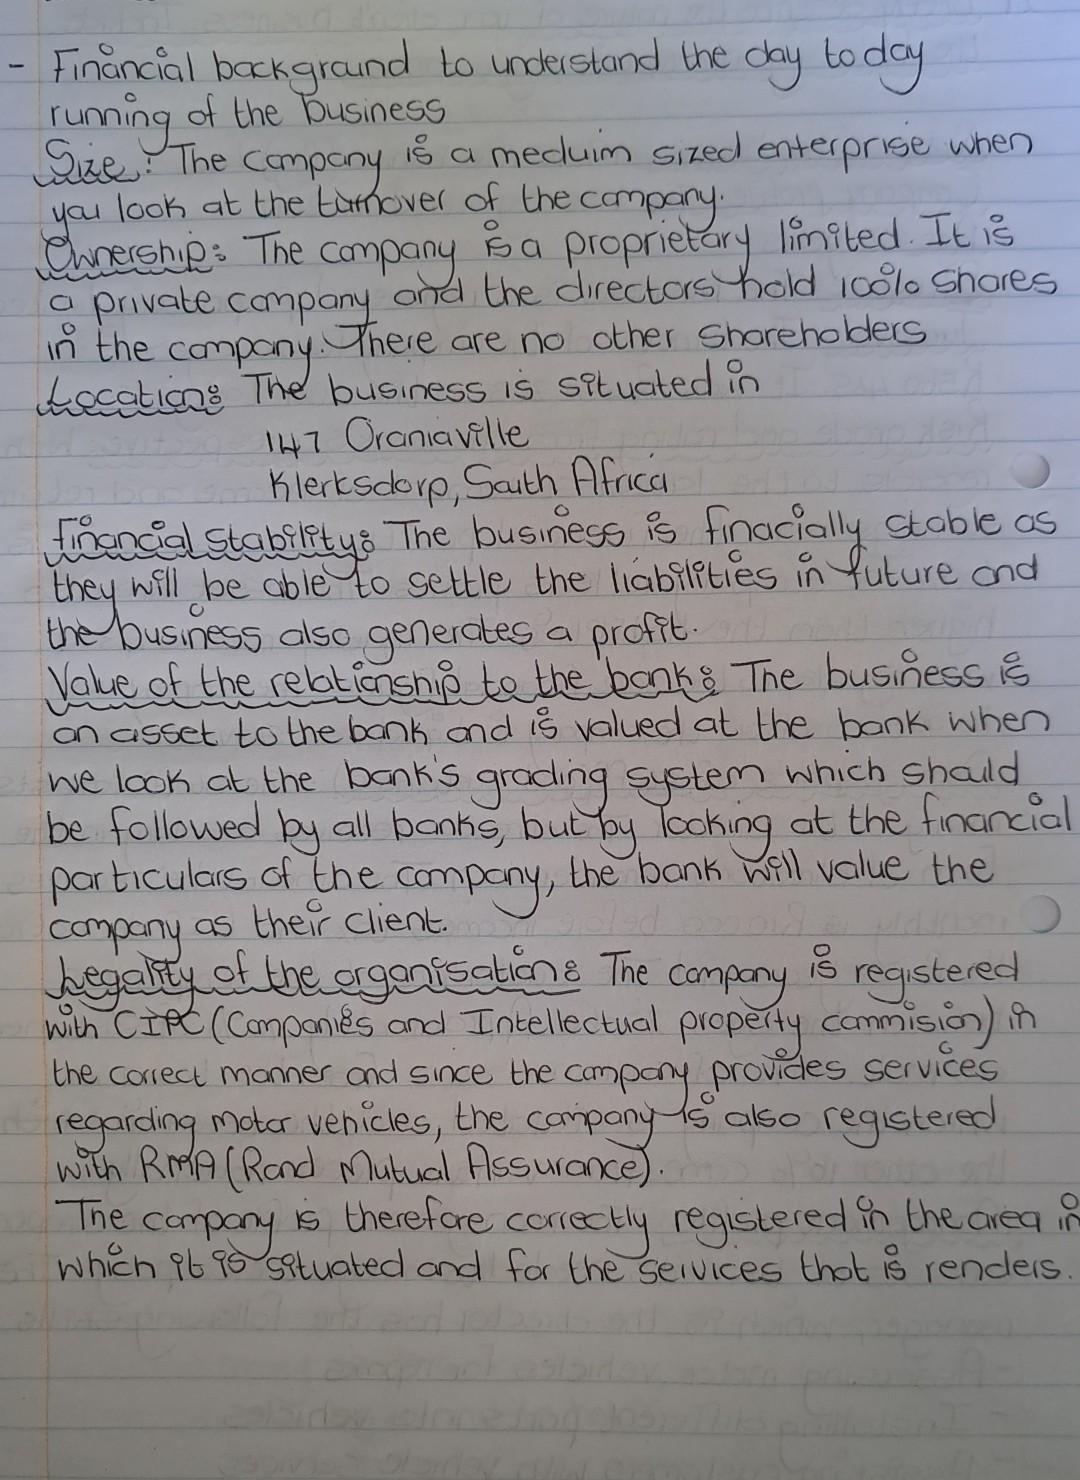 - Financial background to understand the day to day
running of the business
Size: The company is a meduim sized enterprise when
you look at the turnover of the company.
Ownership: The company is a proprietary limited. It is
a private company and the directors hold 100% shares
in the company. There are no other shareholders
Location: The business is situated in
147 Oraniaville
Klerksdorp, South Africa
Financial stability: The business is finacially stable as
they will be able to settle the liabilities in future and
the business also generates a profit.
Value of the relationship to the bank: The business is
an asset to the bank and is valued at the bank when
we look at the bank's grading system which should
be followed by all banks, but by looking at the financial
particulars of the company, the bank will value the
company as their client.
Legality of the organisation: The company is registered
with CIPC (Companies and Intellectual property commision) in
the correct manner and since the company provides services
regarding motor vehicles, the company is also registered
with RMA (Rand Mutual Assurance).
The company is therefore correctly registered in the area in
which it is situated and for the services that is renders.